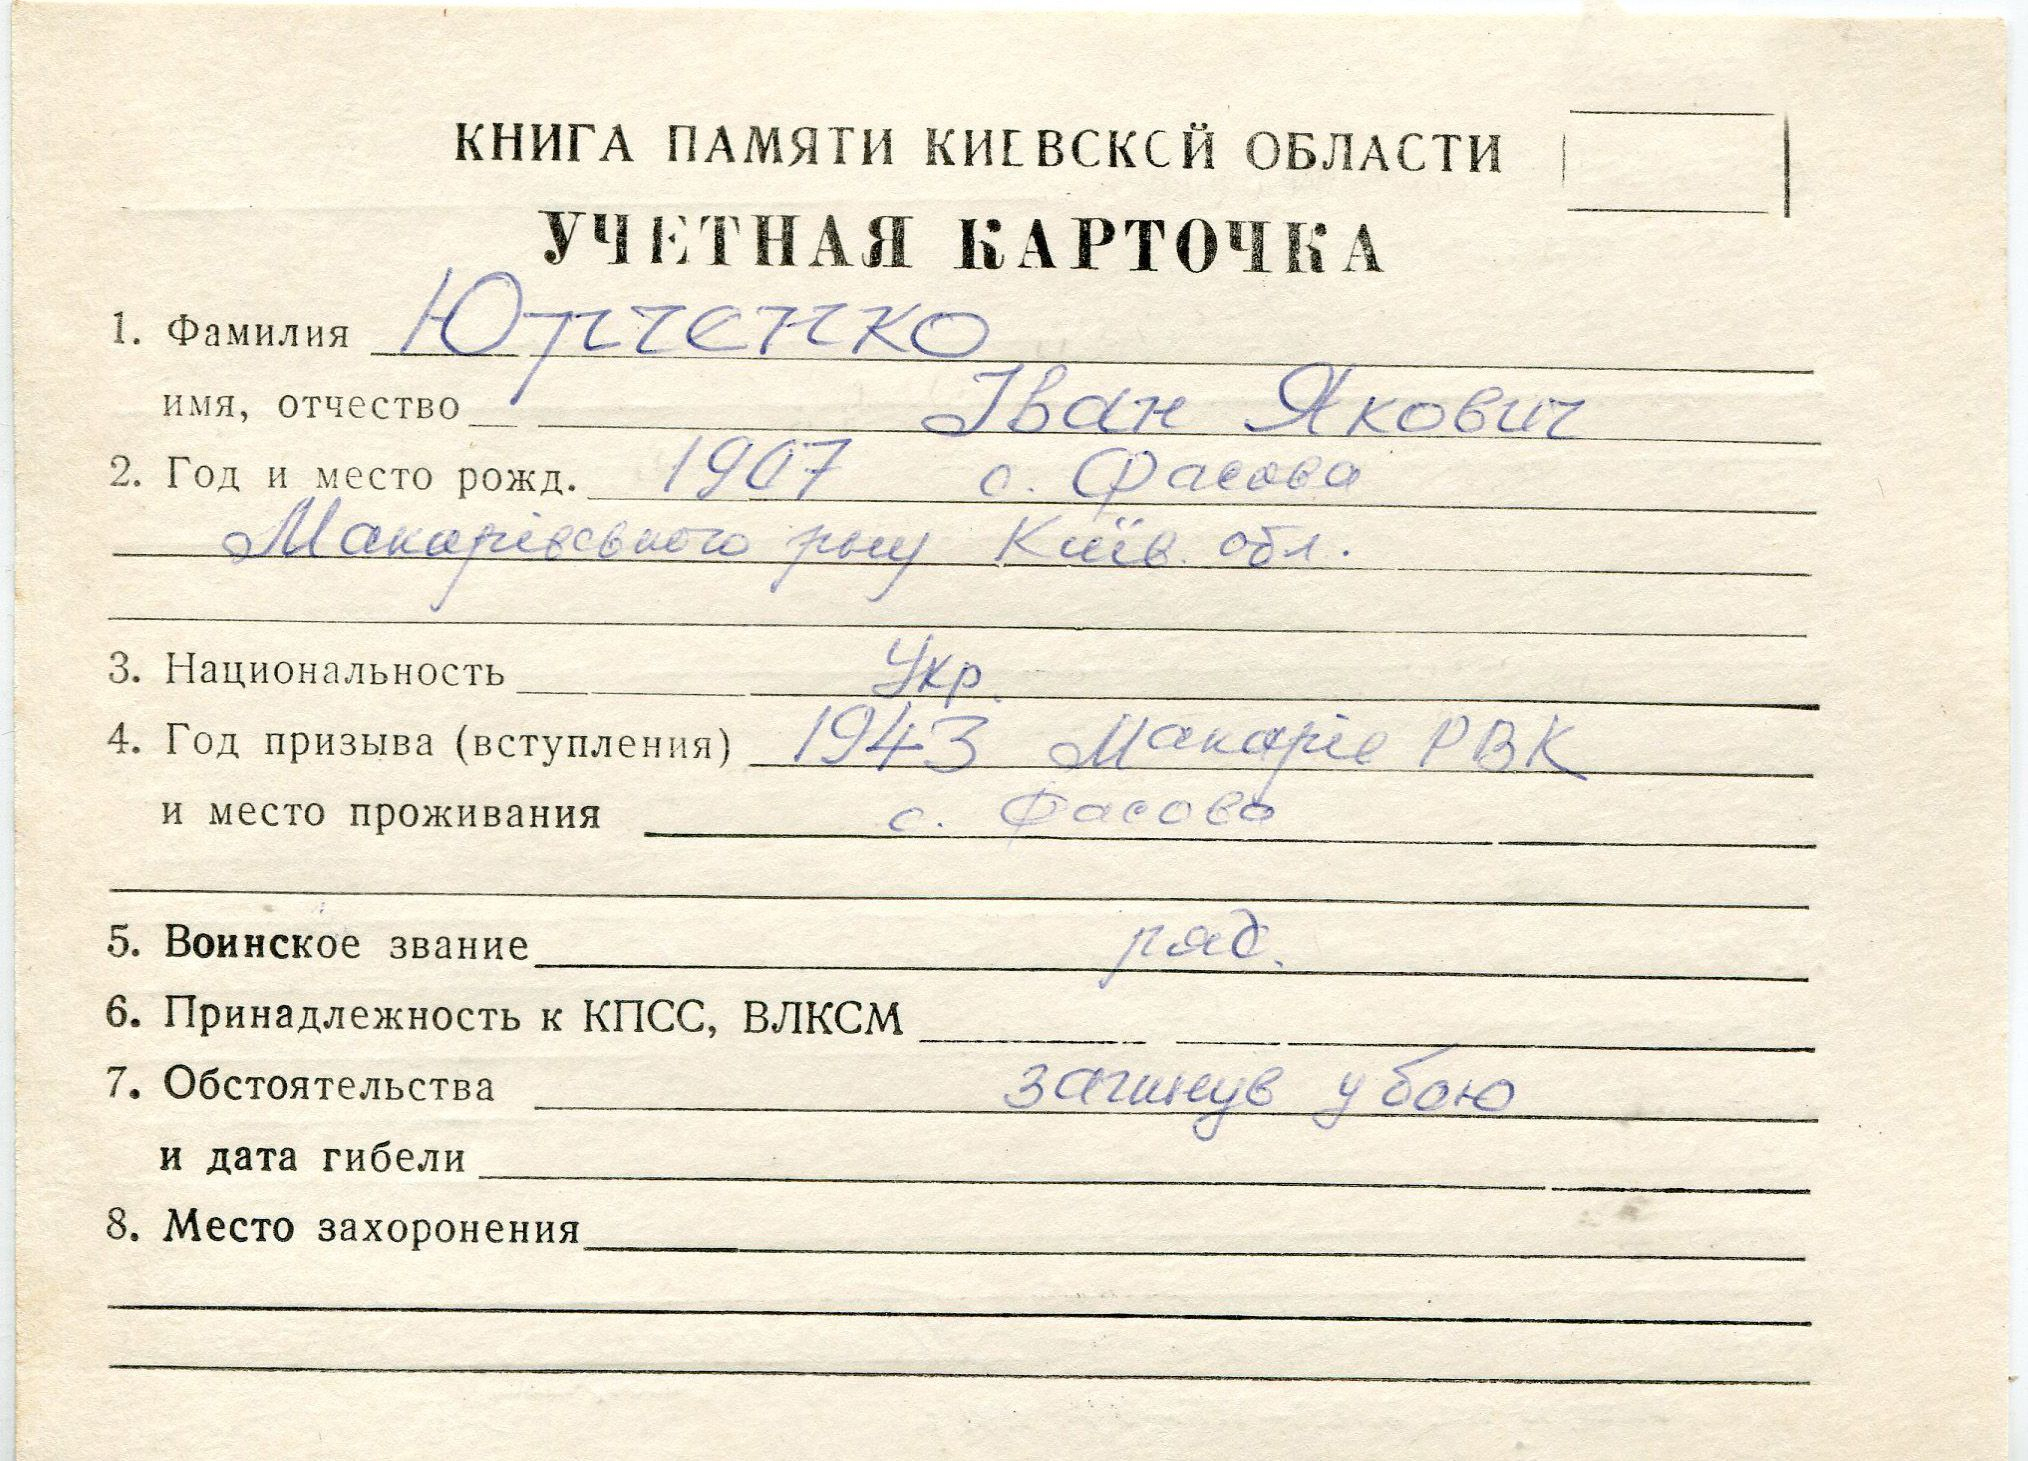 КНИГА ПАМЯТИ КИЕВСКОЙ ОБЛАСТИ
УЧЕТНАЯ КАРТОЧКА
1. Фамилия Юрченко
имя, отчество Іван Якович
2. Год и место рожд. 1907 с. Фасова
Макарівського р-ну Київ. обл.
3. Национальность Укр.
4. Год призыва (вступления) 1943 Макарів РВК
и место проживания с. Фасова
5. Воинское звание ряд.
6. Принадлежность к КПСС, ВЛКСМ
7. Обстоятельства загинув у бою
и дата гибели
8. Место захоронения